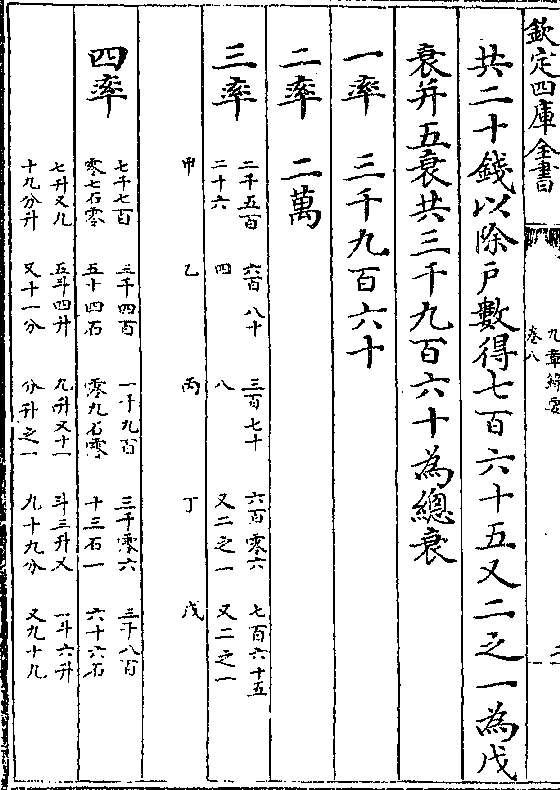 欽定四庫全書
九章錄要
卷八
共二十錢以除戶數得七百六十五又二之一為戊
衰并五衰共三千九百六十為總衰
一率 三千九百六十
二率 二萬
三率
二千五百 六百八十 三百七十 六百零六 七百六十五
二十六 四 八 又二之一 又二之一
甲 乙 丙 丁 戊
四率
七千七百 三千四百 一千九百 三千零六 三千八百
零七石零 五十四石 零九石零 十三石一 六十六石
七升又九 五斗四升 九升又十一 斗三升又 一斗六升
十九分升 又十一分 分升之一 九十九分 又九十九